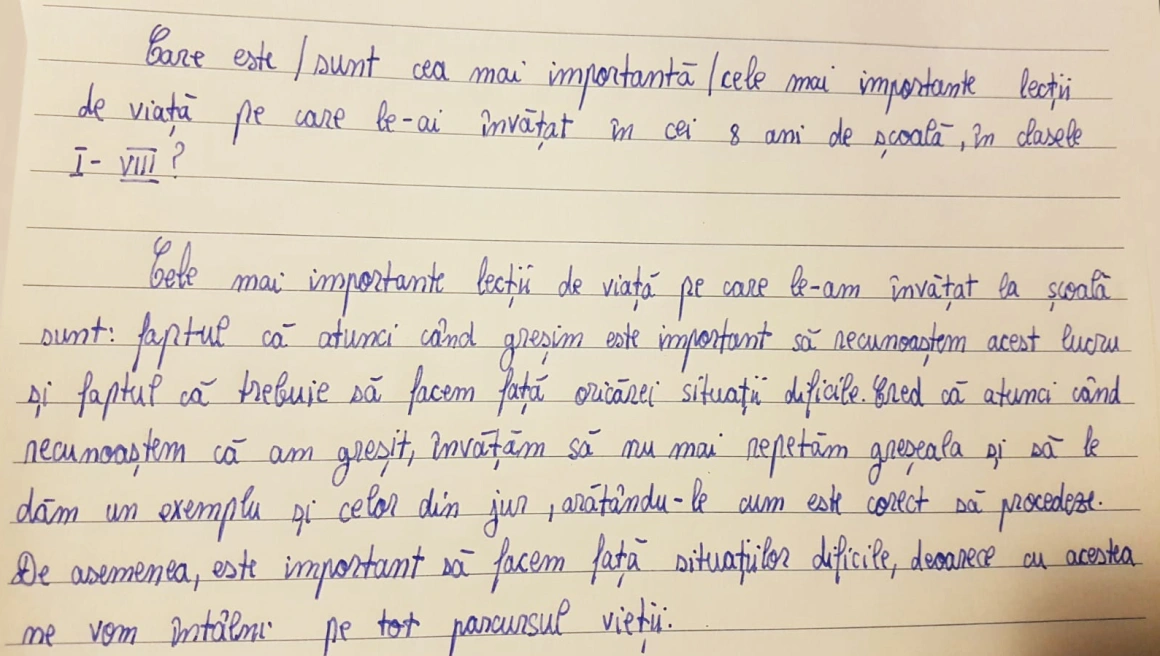 Care este / sunt cea mai importantă / cele mai importante lecții
de viață pe care le-ai învățat în cei 8 ani de școală, în clasele
I - VIII ?
Cele mai importante lecții de viață pe care le-am învățat la școală
sunt: faptul că atunci când greșim este important să recunoaștem acest lucru
și faptul că trebuie să facem față oricărei situații dificile. Cred că atunci când
recunoaștem că am greșit, învățăm să nu mai repetăm greșeala și să le
dăm un exemplu și celor din jur, arătându-le cum este corect să procedeze.
De asemenea, este important să facem față situațiilor dificile, deoarece cu acestea
ne vom întâlni pe tot parcursul vieții.